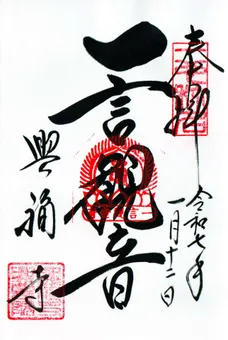 奉拝
令和七年
一月十二日
一言観音
興福寺